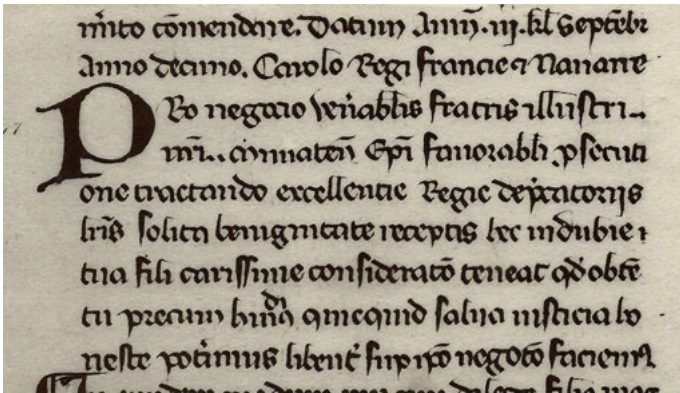 mĩto cõmendare. Datum Auiñ. iij. kl Septẽbr
Anno decimo. Carolo Regi francie ⁊ Nauarre
PRo negocio veñablis fratris illustri..
cinmateñ Ep̃i fauorabli ꝓsecuti
one tractando excellentie Regie dep̃catoriis
lr̃is solita benignitate receptis hec indubie
tua fili carissime consideratõ teneat qđ obtẽ
tu precum quicquid salua iusticia ho
neste potĩmus libent̃ sup ip̃o negotõ faciemꝰ